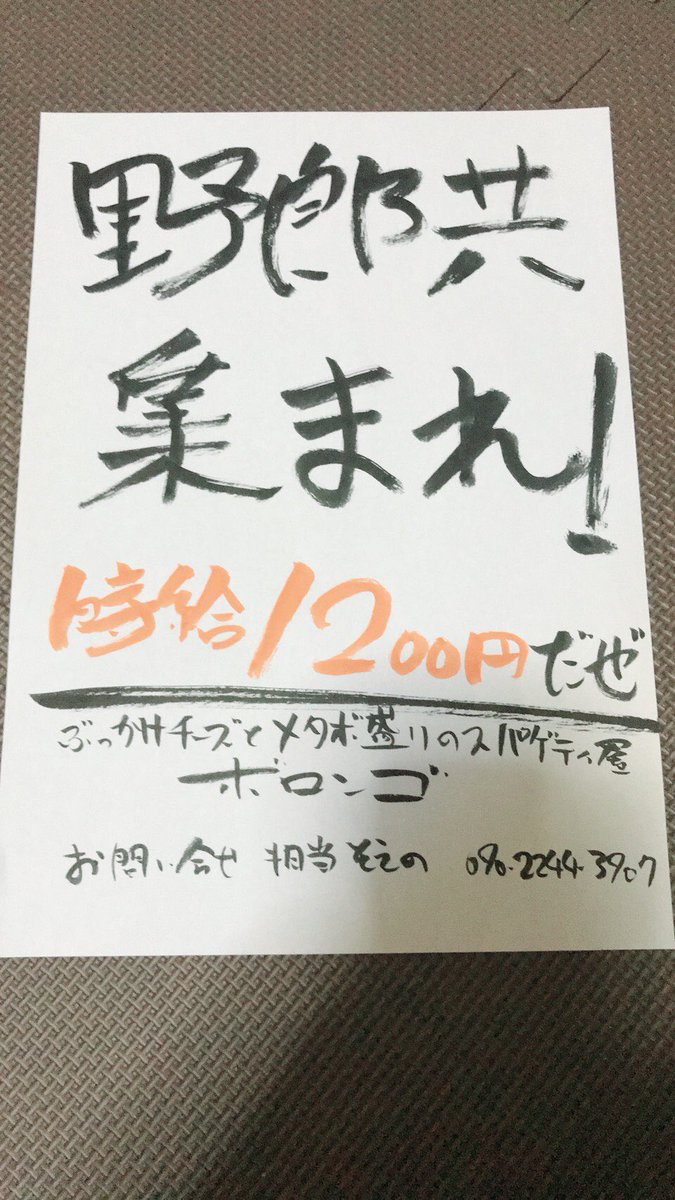 野郎共
集まれ!
時給1200円だぜ
ぶっかけチーズとメタボ盛りのスパゲティ屋
ボロンゴ
お問い合せ 担当 そえの 090-2244-3907